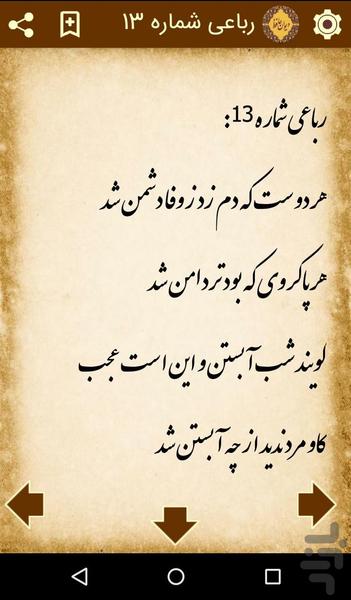 رباعی شماره ۱۳
رباعی شماره 13:
هر دوست که دم زد ز وفا دشمن شد
هر پاکروی که بود تردامن شد
گویند شب آبستن و این است عجب
کاو مرد ندید از چه آبستن شد
بازار